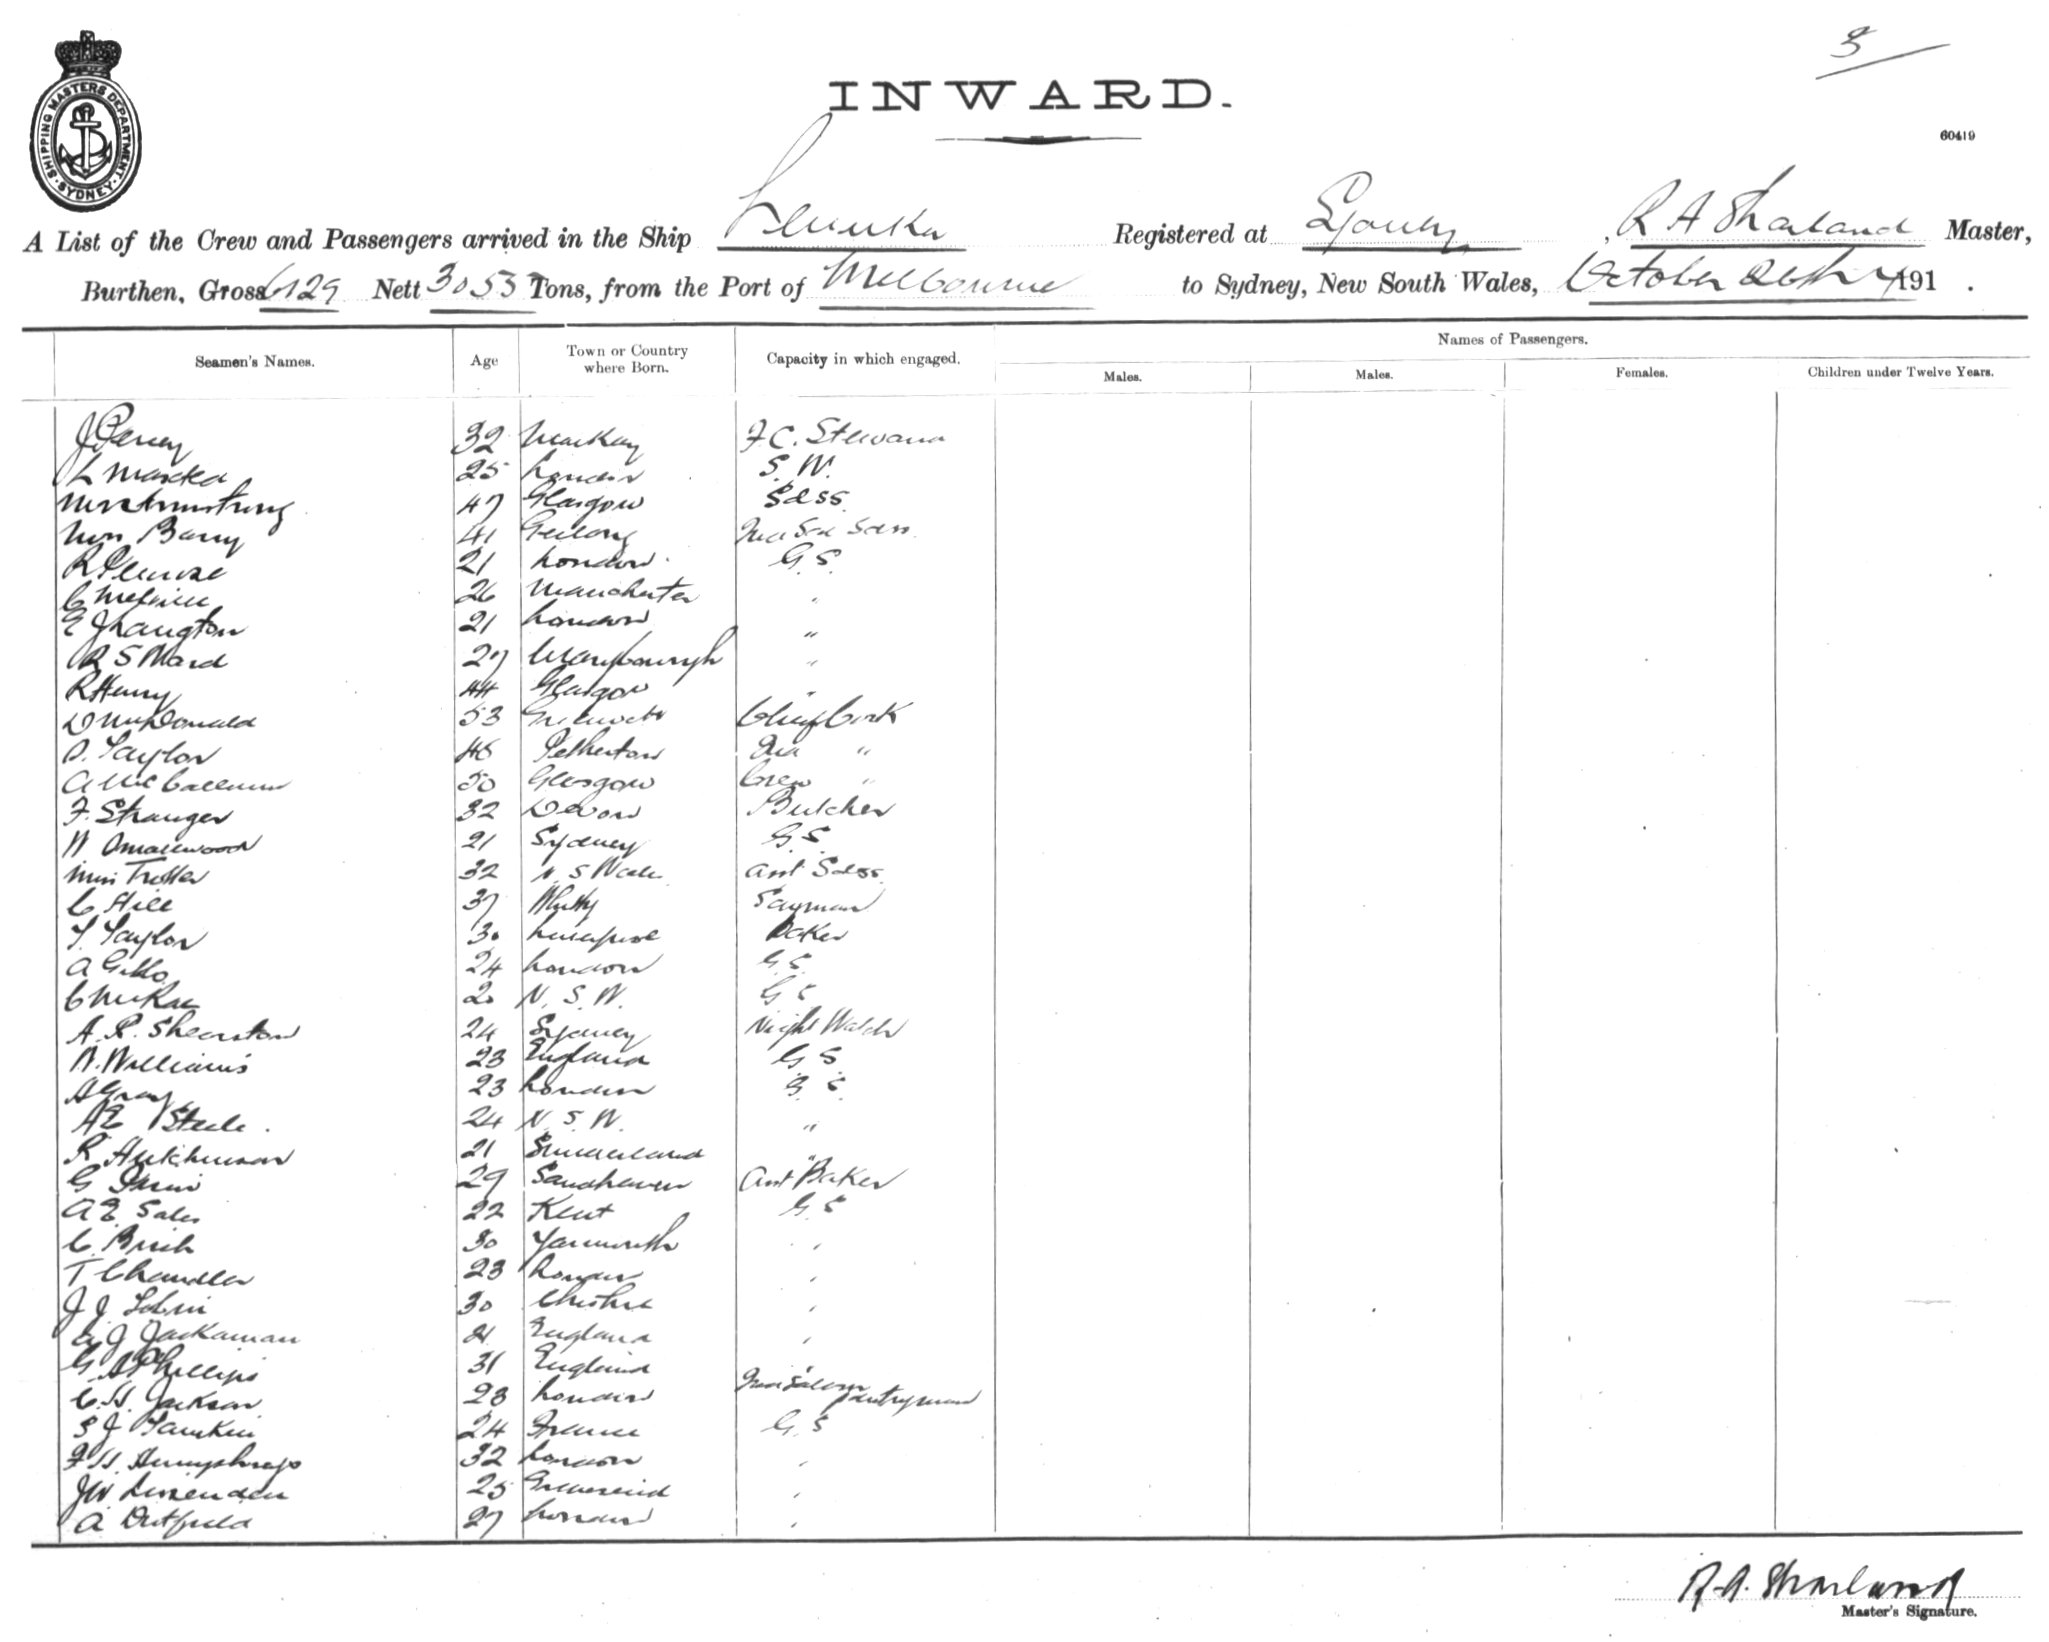 3
INWARD.
60419
SHIPPING MASTERS DEPARTMENT SYDNEY
A List of the Crew and Passengers arrived in the Ship Levuka Registered at Sydney, R A Sharland Master,
Burthen, Gross 6129 Nett 3053 Tons, from the Port of Melbourne to Sydney, New South Wales, October 26th 191 .
Seamen's Names. Age Town or Country where Born. Capacity in which engaged. Names of Passengers.
Males. Males. Females. Children under Twelve Years.
32 Mackay F.C. Steward
25 London S. W.
Mrs Armstrong 47 Glasgow Sdss.
Mrs Barry 41 Geelong
21 London G. S.
C Melville 26 Manchester "
E J Langton 21 London "
R S Ward 27 Maryborough "
R Henry 44 Glasgow "
D McDonald 53 Greenock Chief Cook
Taylor Petherton 2nd "
A McCallum 50 Glasgow Crew "
F. Stranger 32 Devon Butcher
W Smallwood 21 Sydney G. S.
Miss Trotter 32 N. S Wales Asst Sdss.
C Hill 37 Whitby
T. Taylor 30 Liverpool Baker
A 24 London G. S.
C McRae 20 N. S. W. G S
A. R. Shearston 24 Sydney Night Watch
W. Williams 23 England G S
A Gray 23 London G. S.
A E Steele. 24 N. S. W. "
R Hutchinson 21 Sunderland "
G 29 Sandhaven Asst Baker
A E Sales 22 Kent G. S
C. Birch 30 Yarmouth "
T Chandler 23 London "
J J Tobin 30 Cheshire "
J Jackaman 21 England "
G A Phillips 31 England "
C. H. Jackson 23 London 2nd Saloon Pantryman
S J Tamkin 24 France G S
F H. Humphreys 32 London "
J W Lissenden 25 Gravesend "
A Dutfield 27 London "
R. A. Sharland
Master's Signature.